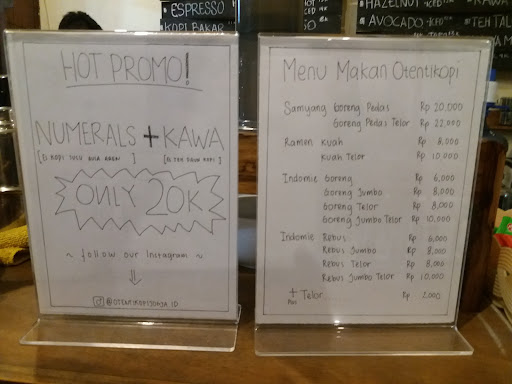 ESPRESSO
KOPI BAKAR
HAZELNUT
AVOCADO
TEH TAL
HOT PROMO!
NUMERALS + KAWA
ONLY 20K
~ follow our Instagram ~
@OTENTIKOPIJOGJA.ID
Menu Makan Otentikopi
Samyang Goreng Pedas Rp 20.000
Goreng Pedas Telor Rp 22.000
Ramen Kuah Rp 8.000
Kuah Telor Rp 10.000
Indomie Goreng Rp 6.000
Goreng Jumbo Rp 8.000
Goreng Telor Rp 8.000
Goreng Jumbo Telor Rp 10.000
Indomie Rebus Rp 6.000
Rebus Jumbo Rp 8.000
Rebus Telor Rp 8.000
Rebus Jumbo Telor Rp 10.000
+ Telor Rp 2.000